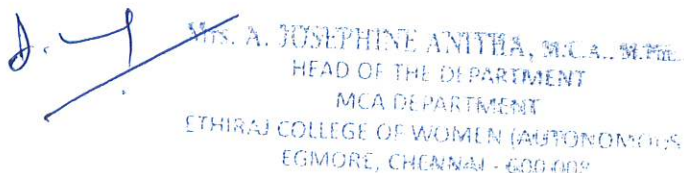 Mrs. A. JOSEPHINE ANITHA, M.C.A., M.Phil.
HEAD OF THE DEPARTMENT
MCA DEPARTMENT
ETHIRAJ COLLEGE OF WOMEN (AUTONOMOUS
EGMORE, CHENNAI - 600 008